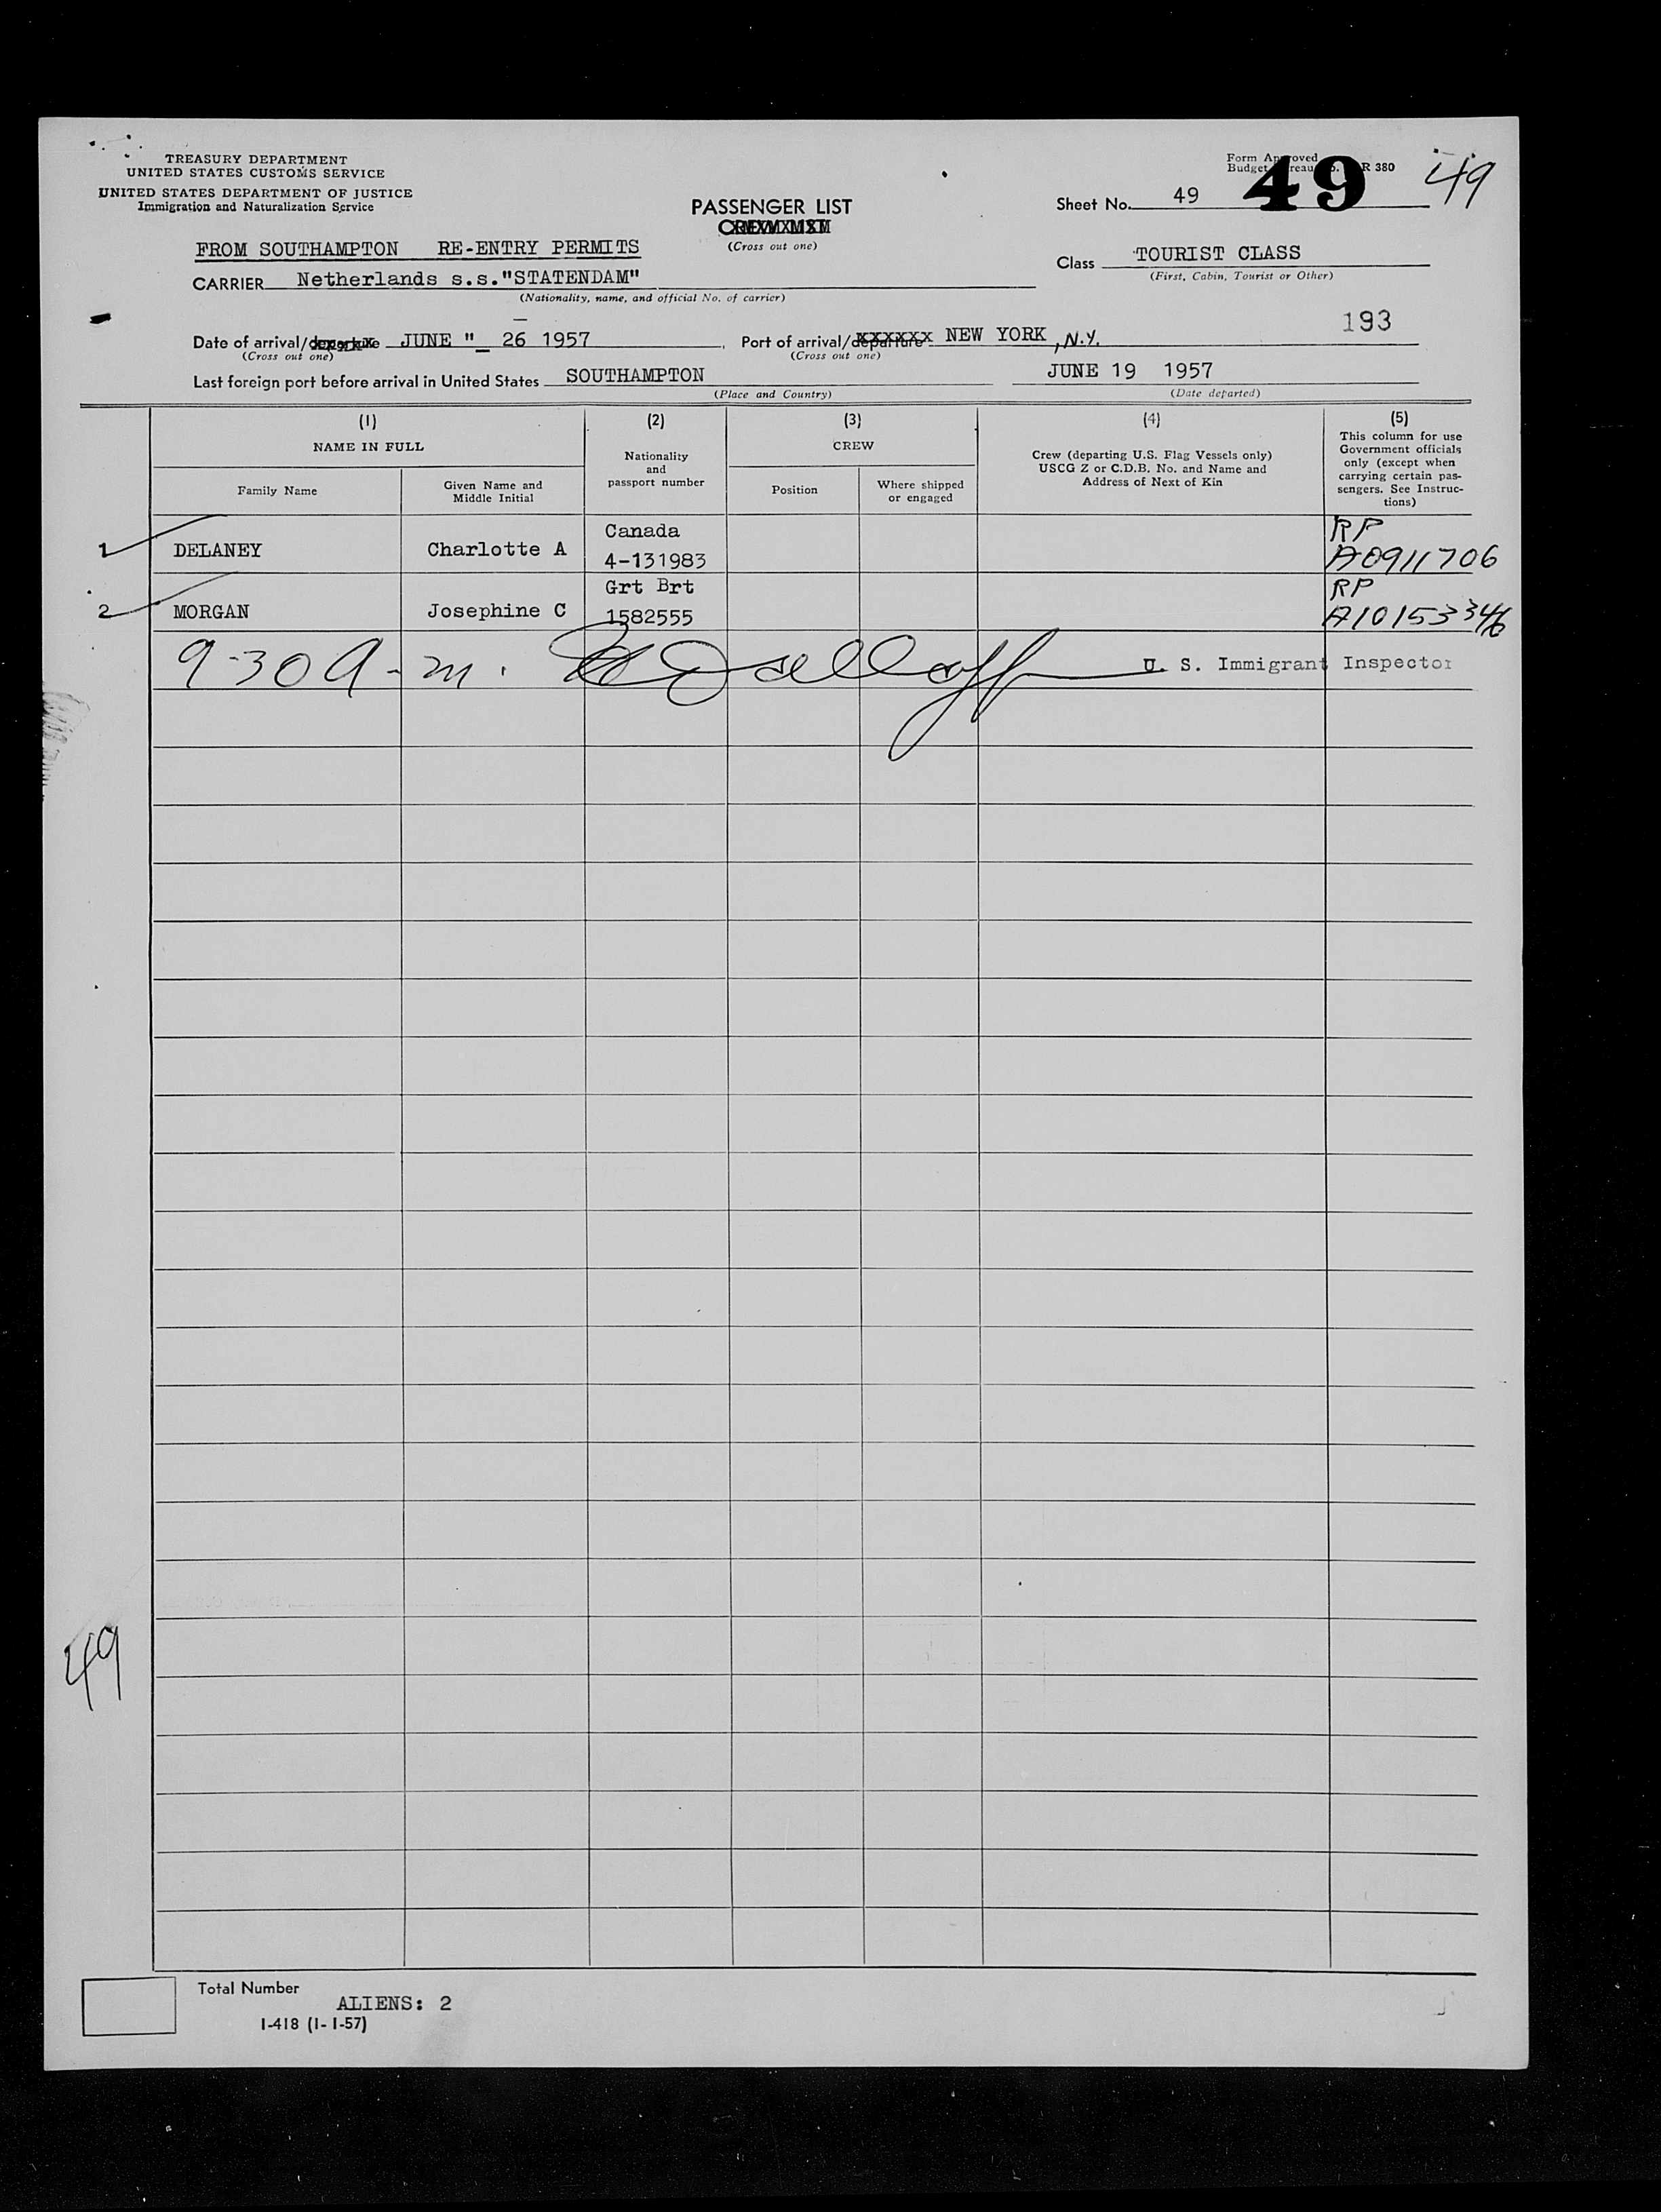 TREASURY DEPARTMENT
UNITED STATES CUSTOMS SERVICE
UNITED STATES DEPARTMENT OF JUSTICE
Immigration and Naturalization Service
Form Approved
Budget Bureau No. R 380
49
49
PASSENGER LIST
(Cross out one)
Sheet No. 49
FROM SOUTHAMPTON RE-ENTRY PERMITS
Class TOURIST CLASS
(First, Cabin, Tourist or Other)
CARRIER Netherlands s.s."STATENDAM"
(Nationality, name, and official No. of carrier)
193
Date of arrival/departure JUNE "_ 26 1957
(Cross out one)
Port of arrival/departure NEW YORK, N.Y.
(Cross out one)
Last foreign port before arrival in United States SOUTHAMPTON
(Place and Country)
JUNE 19 1957
(Date departed)
(1)
NAME IN FULL
Family Name
Given Name and
Middle Initial
(2)
Nationality
and
passport number
(3)
CREW
Position
Where shipped
or engaged
(4)
Crew (departing U.S. Flag Vessels only)
USCG Z or C.D.B. No. and Name and
Address of Next of Kin
(5)
This column for use
Government officials
only (except when
carrying certain pas-
sengers. See Instruc-
tions)
1 DELANEY Charlotte A Canada 4-131983 RP A0911706
2 MORGAN Josephine C Grt Brt 1582555 RP A10153346
9-30 A-m. U. S. Immigrant Inspector
49
Total Number
ALIENS: 2
I-418 (1-1-57)